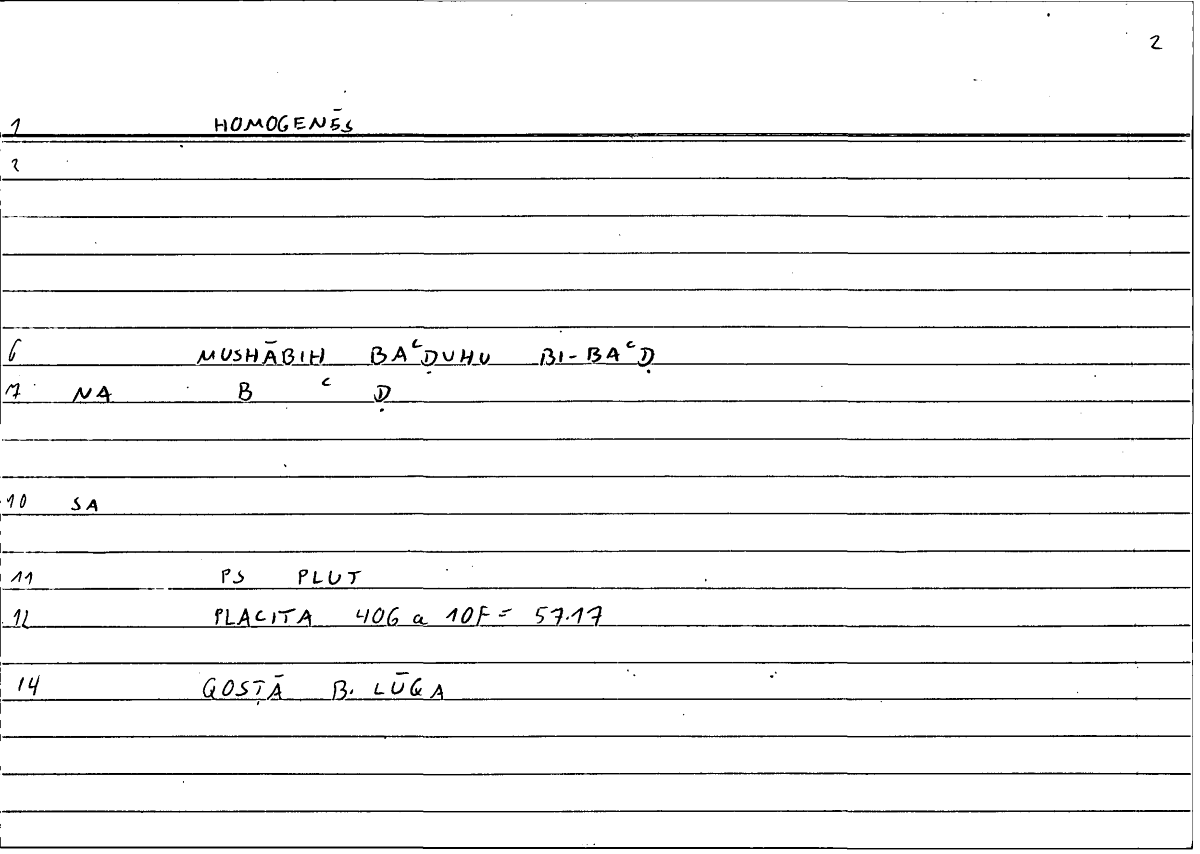 2
1 HOMOGENĒS
2
6 MUSHĀBIH BAʿḌUHU BI-BAʿḌ
7 NA B ʿ Ḍ
10 SA
11 PS PLUT
12 PLACITA 406 a 10F = 57.17
14 QOSṬĀ B. LŪQA